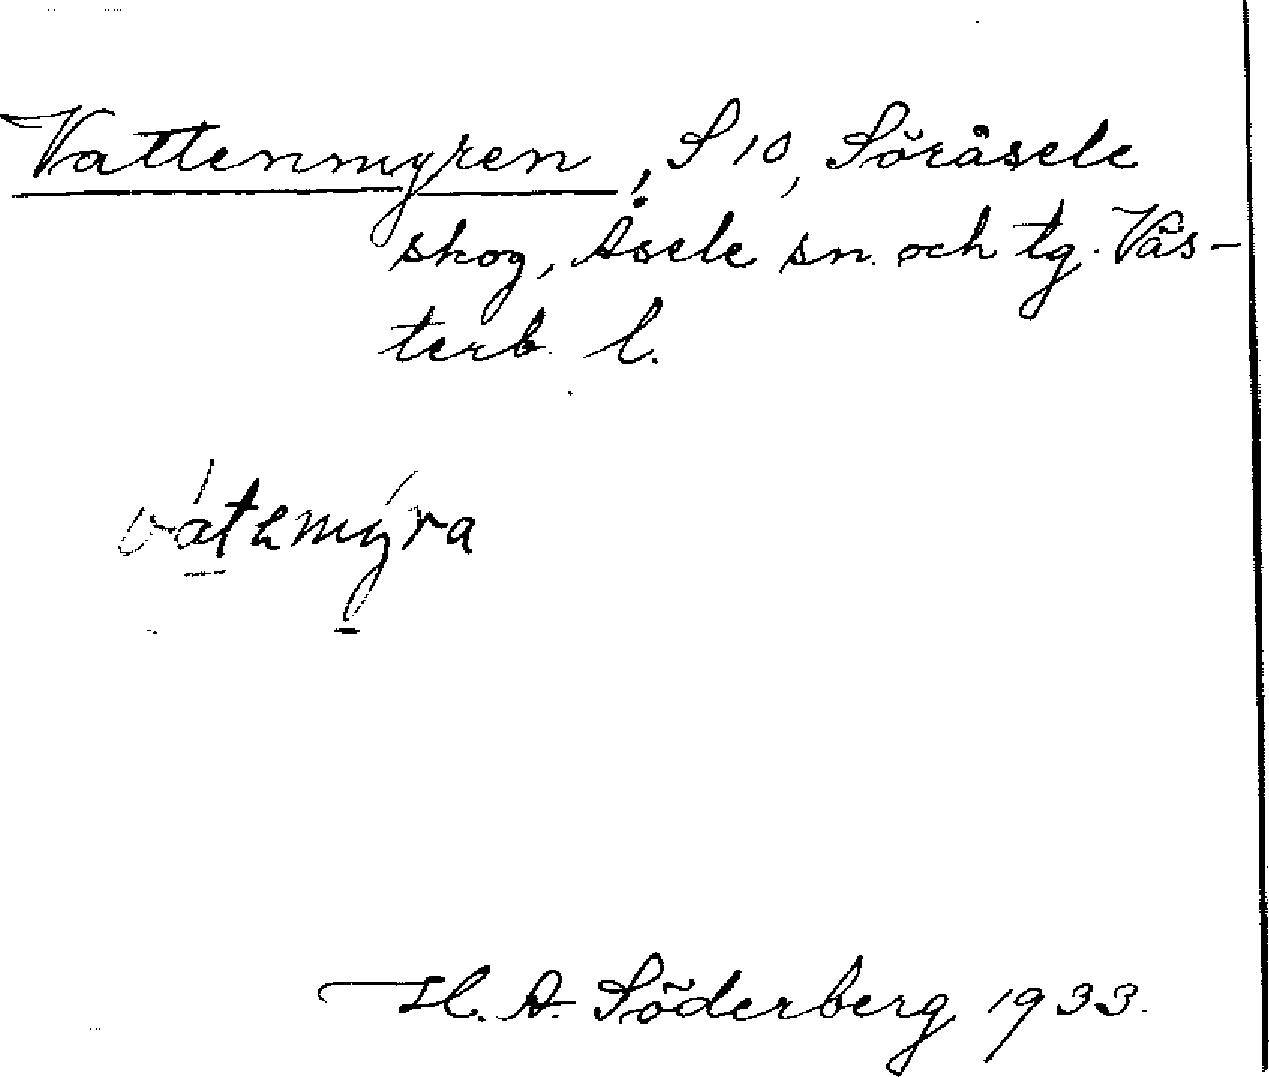 Vattenmyren, S 10, Söråsele
skog, Åsele sn. och tg. Väs-
terb. l.
vátnmýra
H. A. Söderberg 1933.